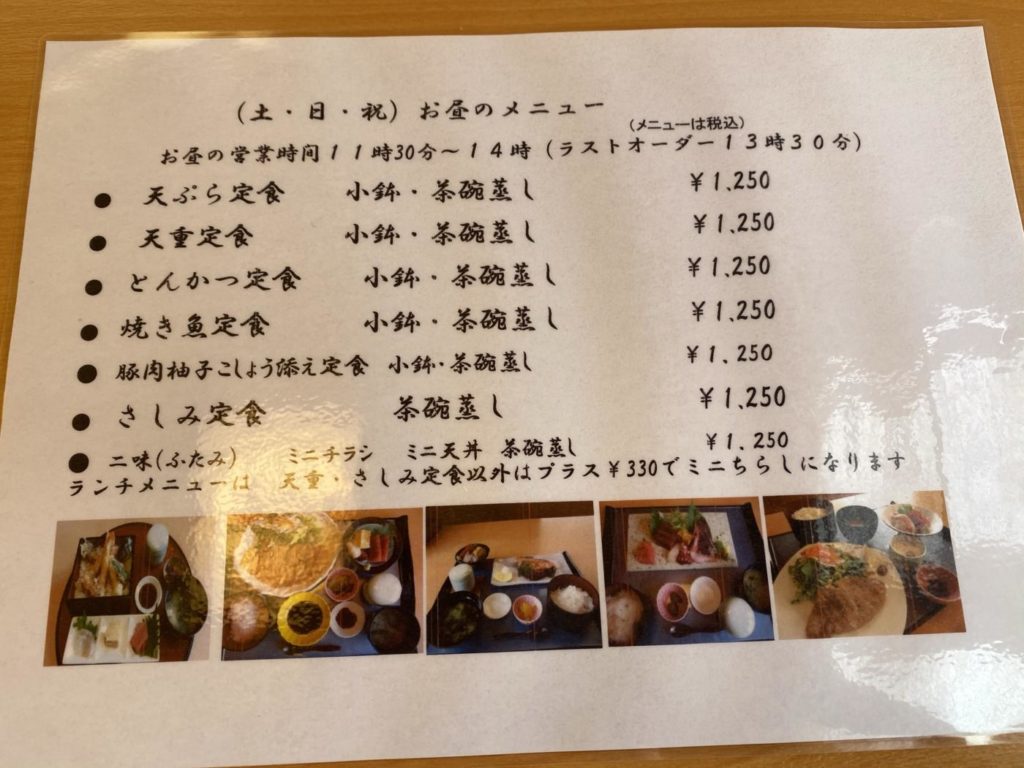 (土・日・祝) お昼のメニュー
(メニューは税込)
お昼の営業時間11時30分～14時 (ラストオーダー13時30分)
● 天ぷら定食 小鉢・茶碗蒸し ￥1、250
● 天重定食 小鉢・茶碗蒸し ￥1、250
● とんかつ定食 小鉢・茶碗蒸し ￥1、250
● 焼き魚定食 小鉢・茶碗蒸し ￥1、250
● 豚肉柚子こしょう添え定食 小鉢・茶碗蒸し ￥1、250
● さしみ定食 茶碗蒸し ￥1、250
● 二味(ふたみ) ミニチラシ ミニ天丼 茶碗蒸し ￥1、250
ランチメニューは 天重・さしみ定食以外はプラス￥330でミニちらしになります